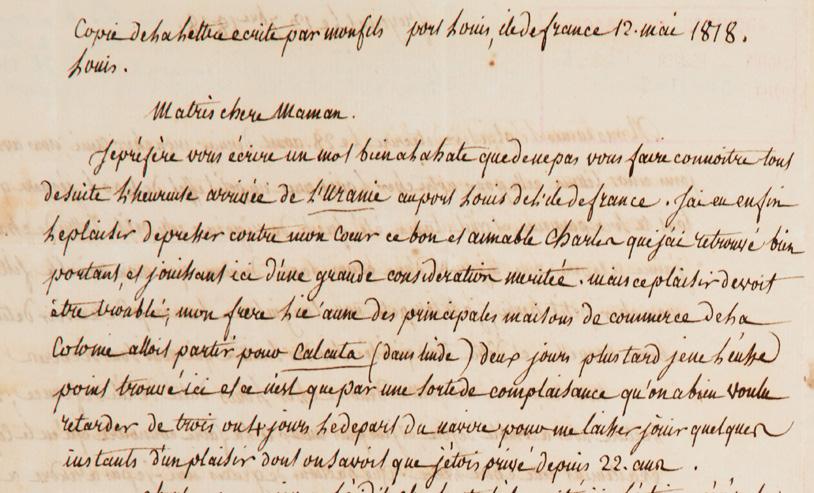 Copie de la lettre ecrite par mon fils port Louis, ile de france 12. mai 1818.
Louis.
Ma très chere Maman.
Je préfère vous écrire un mot bien a la hate que de ne pas vous faire connoitre tout
de suite l'heureuse arrivée de L'Uranie au port Louis de l'ile de france. J'ai eu enfin
le plaisir de presser contre mon coeur ce bon et aimable Charles que j'ai retrouvé bien
portant, et jouissant ici d'une grande consideration meritée. mais ce plaisir devoit
être troublé; mon frere lié a une des principales maisons de commerce de la
Colonie alloit partir pour Calcuta (dans l'inde) deux jours plus tard je ne l'eusse
point trouvé ici et ce n'est que par une sorte de complaisance qu'on a bien voulu
retarder de trois ou 4 jours le depart du navire pour me laisser jouir quelques
instants d'un plaisir dont on savoit que j'étois privé depuis 22. ans.